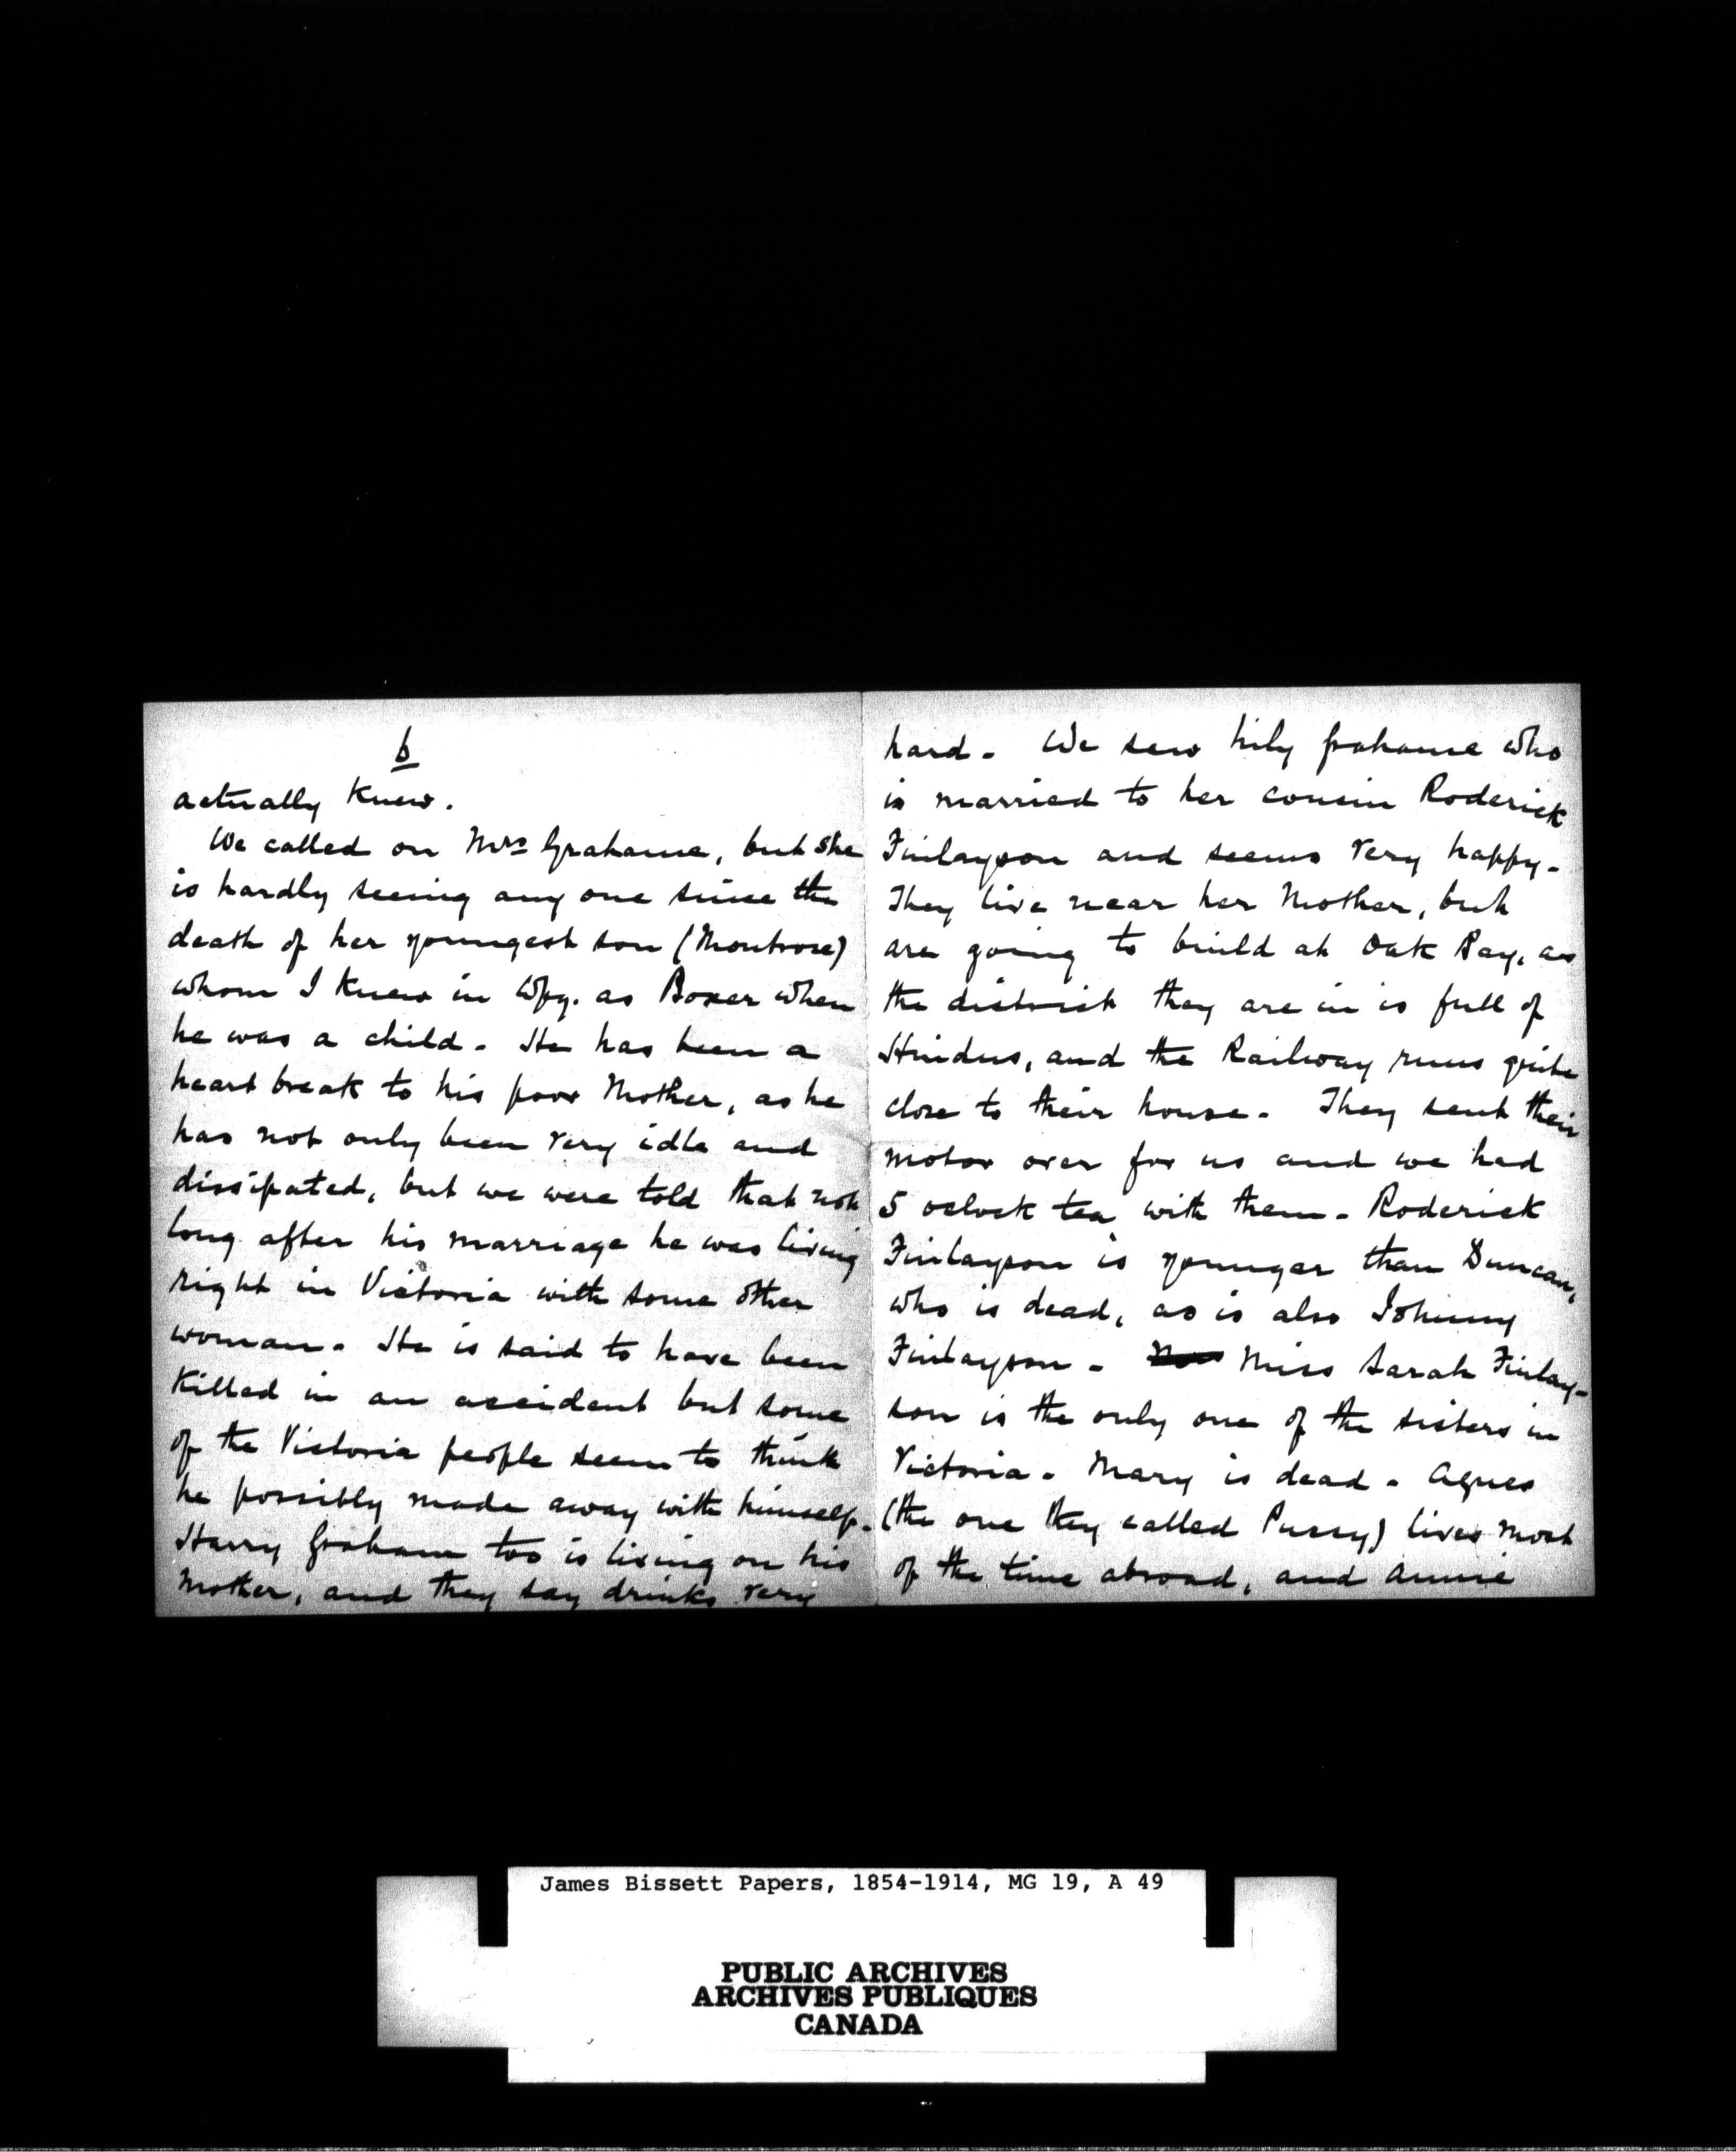 6
actually knew.
We called on Mrs Grahame, but she
is hardly seeing any one since the
death of her youngest son (Montrose)
whom I knew in Wpg. as Boxer when
he was a child. He has been a
heart break to his poor Mother, as he
has not only been very idle and
dissipated, but we were told that not
long after his marriage he was living
right in Victoria with some other
woman. He is said to have been
killed in an accident but some
of the Victoria people seem to think
he possibly made away with himself.
Harry Grahame too is living on his
Mother, and they say drinks very
hard - We saw Lily Grahame who
is married to her cousin Roderick
Finlayson and seems very happy -
They live near her Mother, but
are going to build at Oak Bay, as
the district they are in is full of
Hindus, and the Railway runs quite
close to their house - They sent their
motor over for us and we had
5 oclock tea with them - Roderick
Finlayson is younger than Duncan,
who is dead, as is also Johnny
Finlayson - Miss Sarah Finlay-
son is the only one of the sisters in
Victoria - Mary is dead - Agnes
(the one they called Pussy) lives most
of the time abroad, and Annie
James Bissett Papers, 1854-1914, MG 19, A 49
PUBLIC ARCHIVES
ARCHIVES PUBLIQUES
CANADA